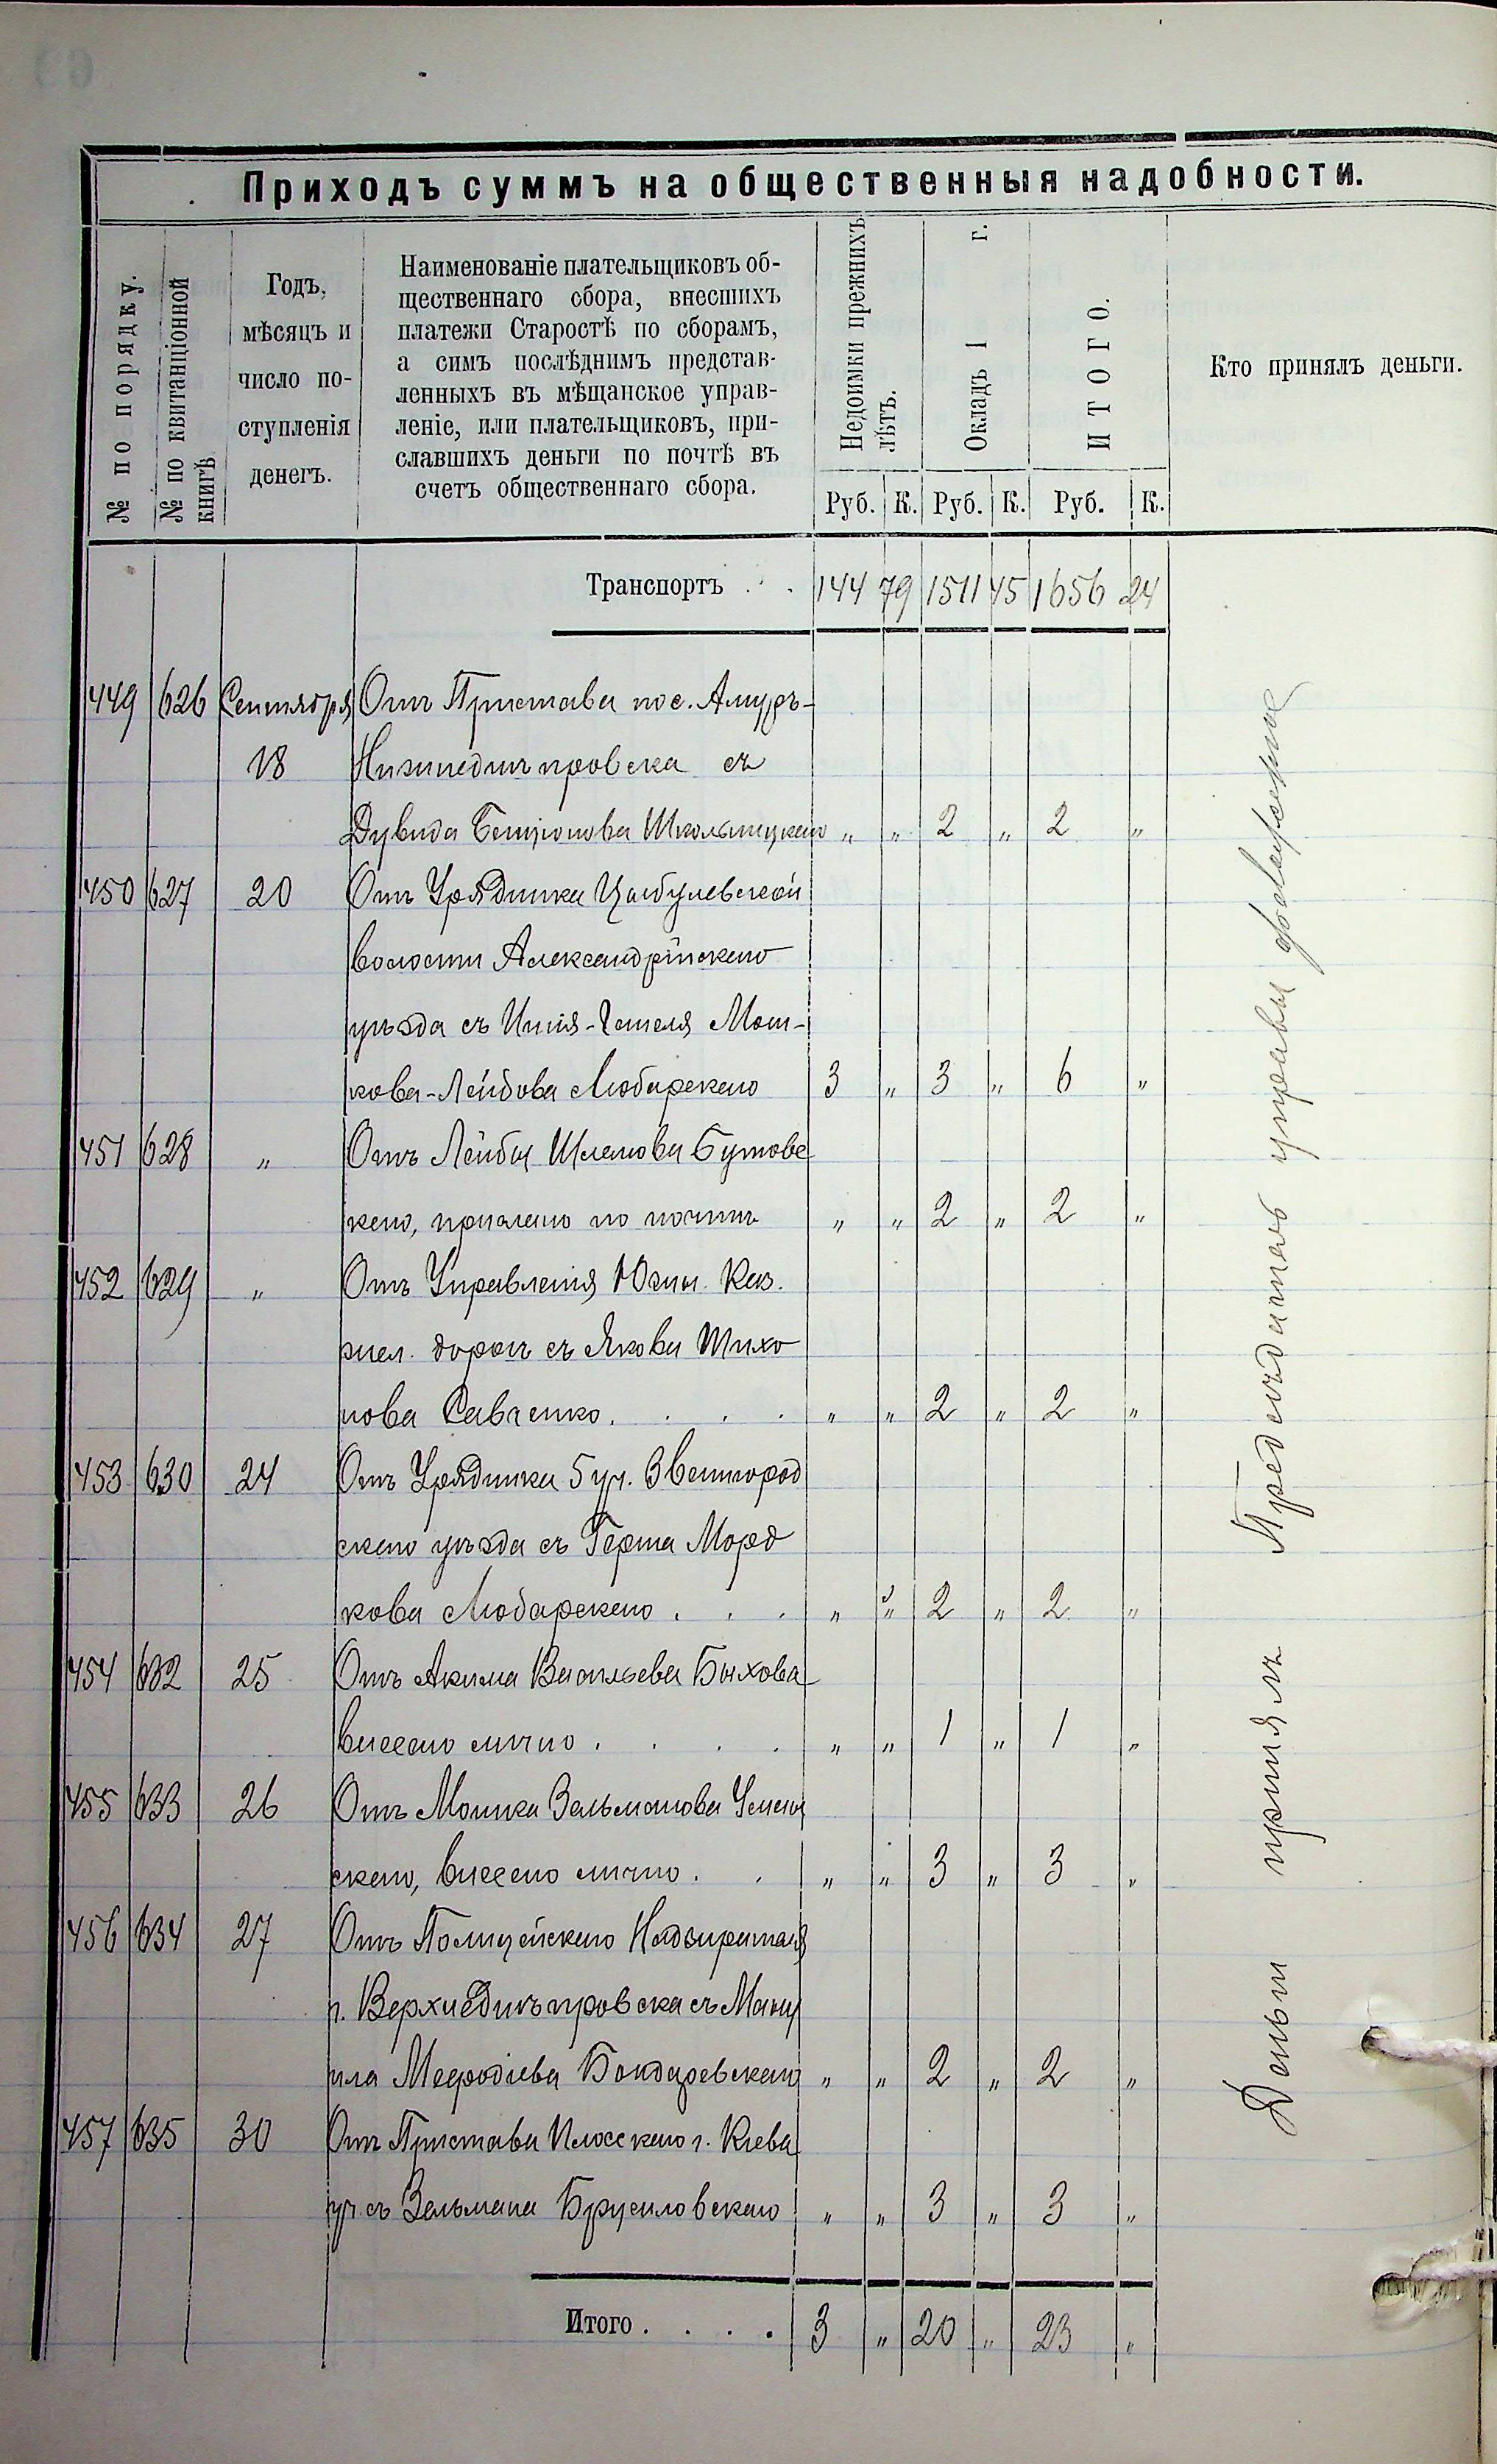 Приходъ суммъ на общественныя надобности.
№ по порядку.
№ по квитанціонной
книгѣ
Годъ,
мѣсяцъ и
число по-
ступленія
денегъ.
Наименованіе плательщиковъ об-
щественнаго сбора, внесшихъ
платежи Старостѣ по сборамъ,
а симъ послѣднимъ представ-
ленныхъ въ мѣщанское управ-
леніе, или плательщиковъ, при-
славшихъ деньги по почтѣ въ
счетъ общественнаго сбора.
Недоимки прежнихъ
лѣтъ.
Окладъ 1 г.
ИТОГО.
Кто принялъ деньги.
Руб. К. Руб. К. Руб. К.
Транспортъ . . 144 79 1511 45 1656 24
449 626 Сентября Отъ Пристава пос. Амуръ-
18 Нижнеднѣпровска съ
Дувида Бенціонова Школьницкаго „ „ 2 „ 2 „
450 627 20 Отъ Урядника Цыбулевской
волости Александрійскаго
уѣзда съ Хиля-Гешеля Мош-
кова-Лейбова Любарскаго 3 „ 3 „ 6 „
451 628 „ Отъ Лейбы Шлемова Бутовс
каго, прислано по почтѣ „ „ 2 „ 2 „
452 629 „ Отъ Управленія Южн. Каз.
жел. дорог съ Якова Тихо
нова Савченко. . . . „ „ 2 „ 2 „
453 630 24 Отъ Урядника 5 уч. Звенигород
скаго уѣзда съ Герша Морд
кова Любарскаго . . . „ „ 2 „ 2 „
454 632 25 Отъ Акима Васильева Быхова
внесено лично . . . . „ „ 1 „ 1 „
455 633 26 Отъ Мошка Зельманова
скаго, внесено лично . . „ „ 3 „ 3 „
456 634 27 Отъ Полицейскаго Надзирателя
г. Верхнеднѣпровска съ Ману
ила Мефодіева Бондаревскаго „ „ 2 „ 2 „
457 635 30 Отъ Пристава Плосскаго г. Кіева
уч. съ Зельмана Брусиловскаго „ „ 3 „ 3 „
Итого . . . . 3 „ 20 „ 23 „
Деньги принялъ Предсѣдатель управы